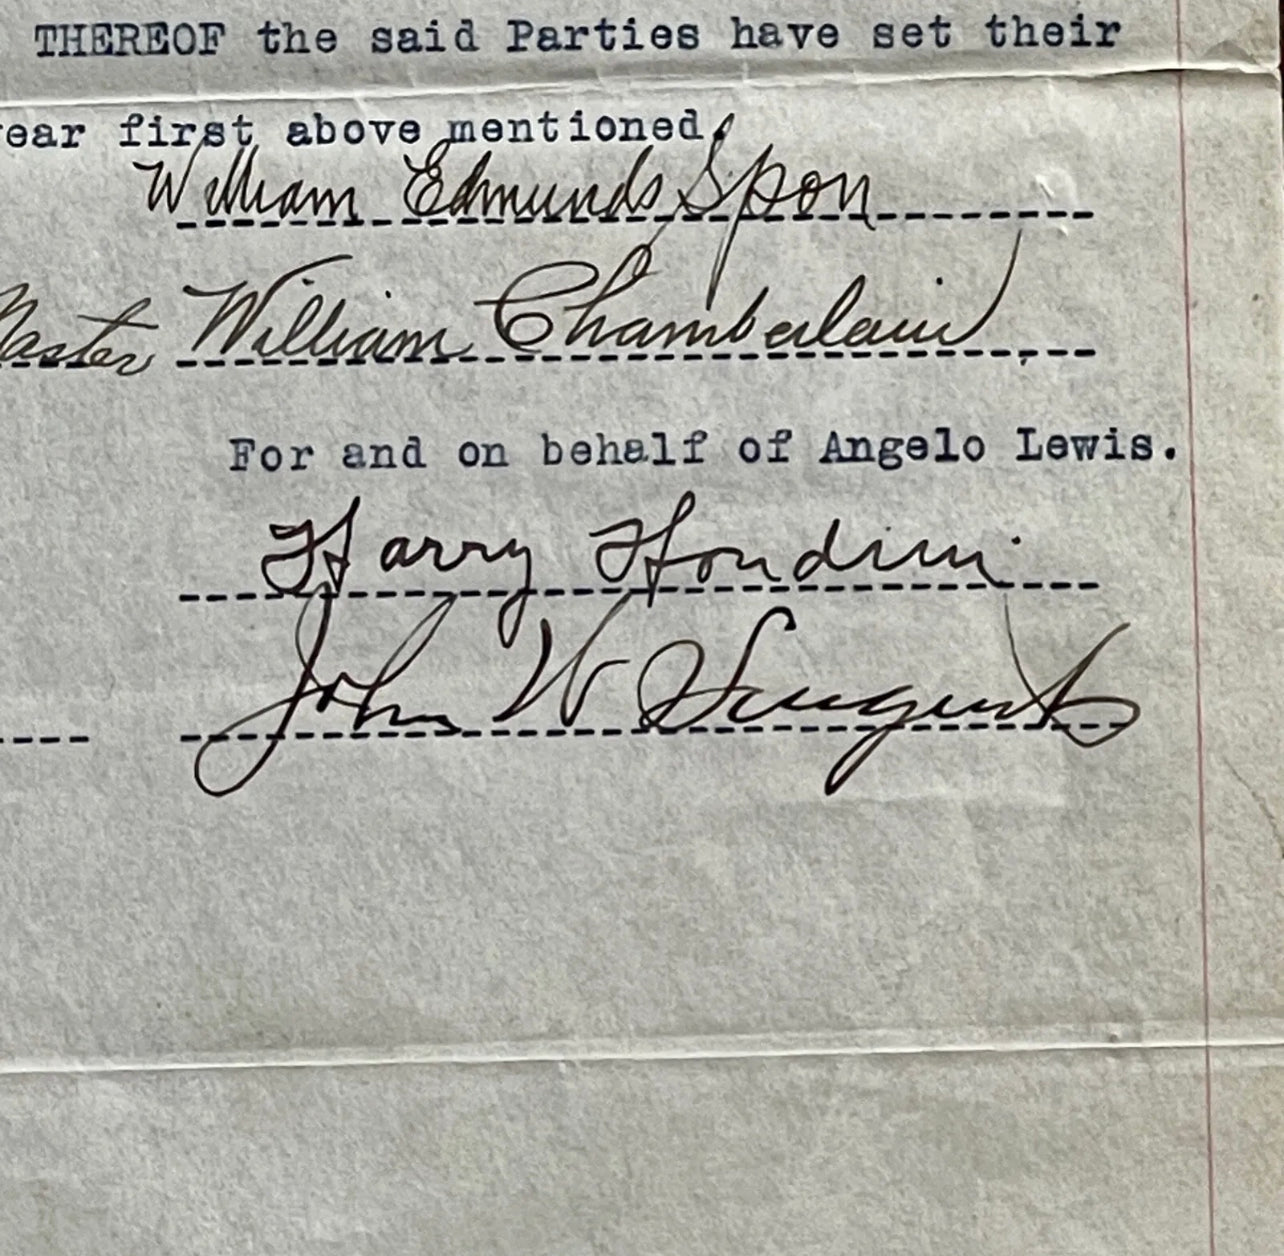 THEREOF the said Parties have set their
ear first above mentioned.
William Edmunds Spon
Master William Chamberlain
For and on behalf of Angelo Lewis.
Harry Houdini
John W Sargent